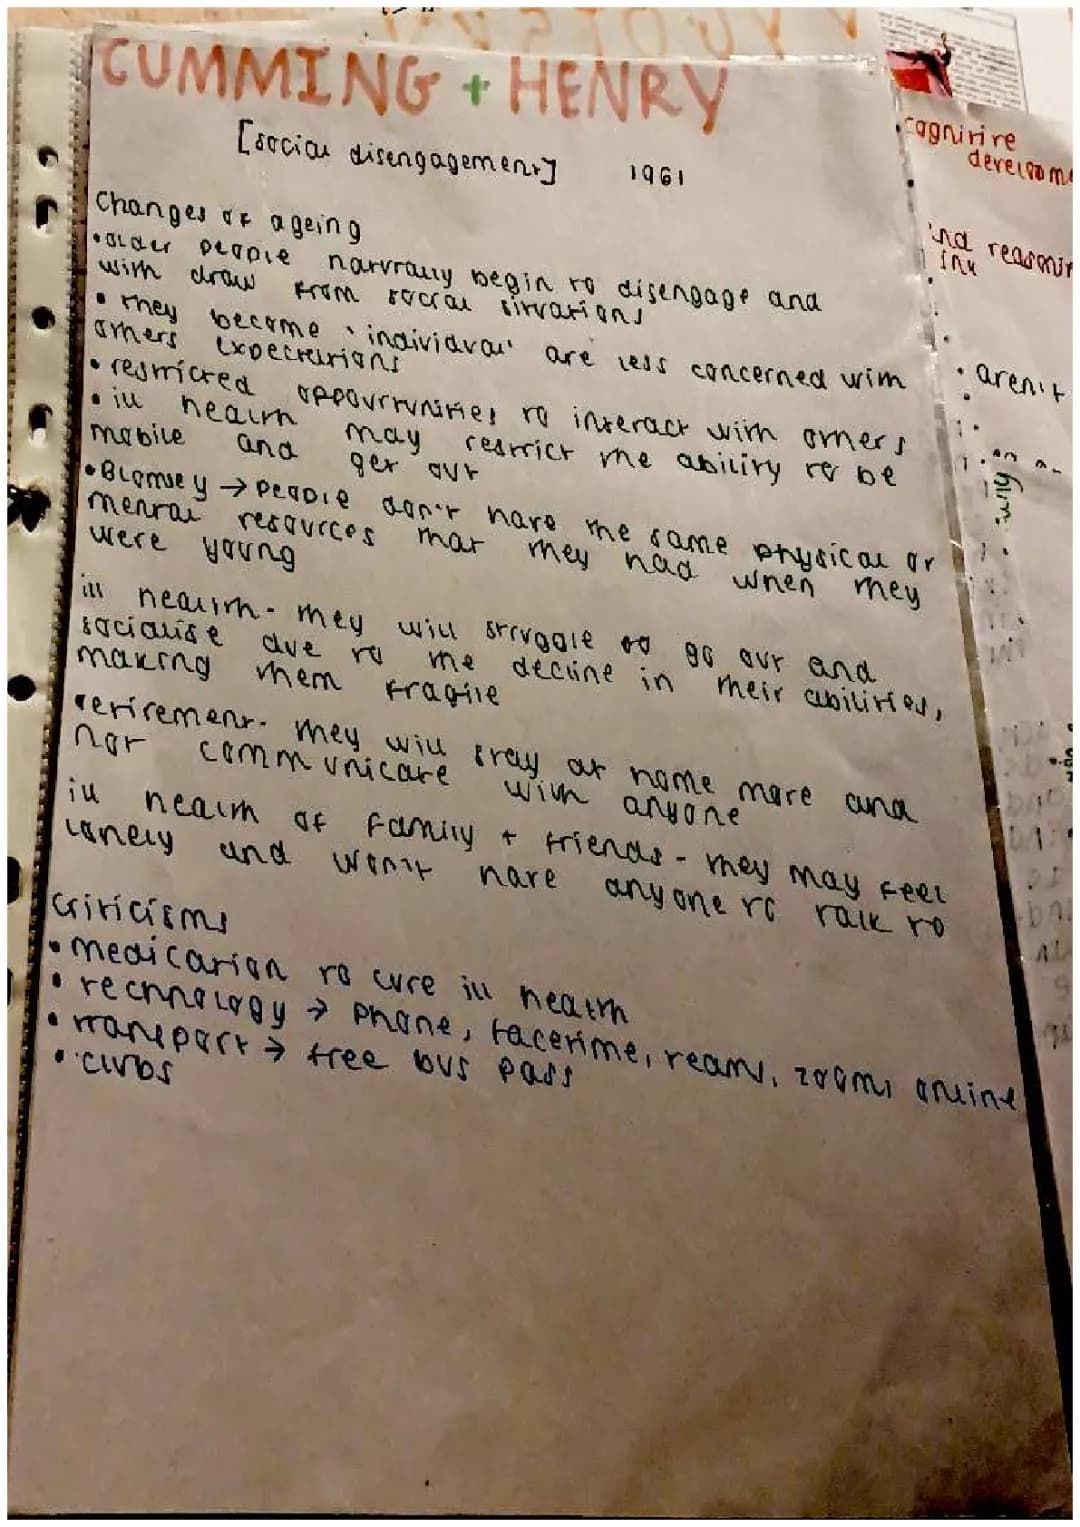 CUMMING + HENRY
[social disengagement] 1961
Changes of ageing
• older people naturally begin to disengage and
with draw from social situations
• they become 'individual' are less concerned with
others expectations
• restricted oppourtunities to interact with others
• ill health may restrict the ability to be
mobile and get out
• Blomsey → people don't have the same physical or
mental resources that they had when they
were young
ill health - they will struggle to go out and
socialise due to the decline in their abilities,
making them fragile
retirement - they will stay at home more and
not communicate with anyone
ill health of family + friends - they may feel
lonely and won't have anyone to talk to
Criticisms
• medication to cure ill health
• technology → phone, facetime, teams, zooms online
• transport → free bus pass
• clubs
cognitive
developme
and reasonin
• aren't